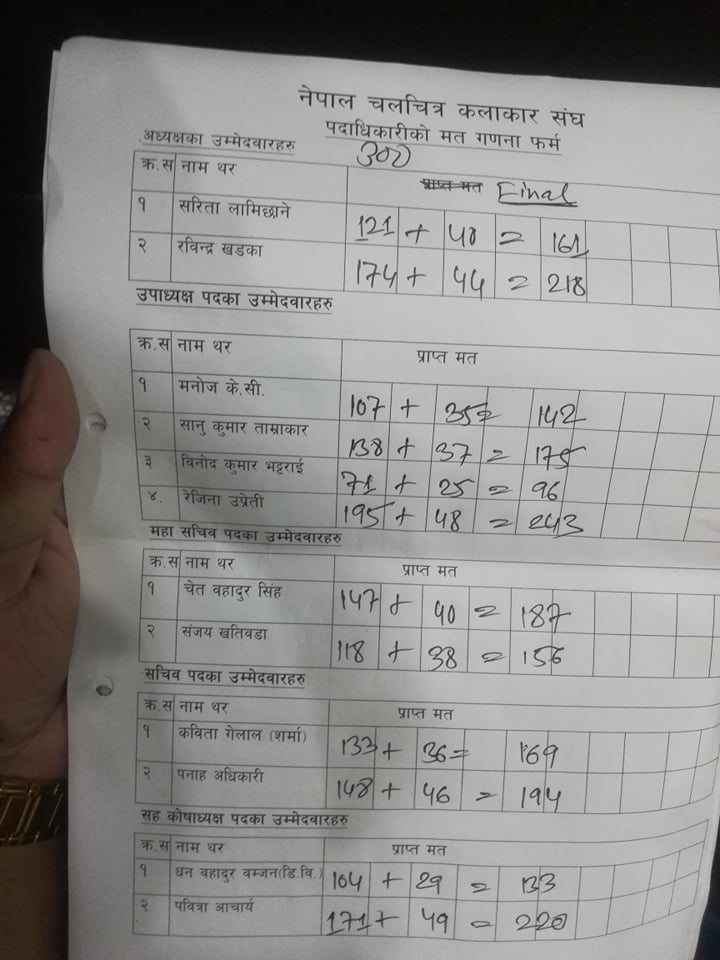 नेपाल चलचित्र कलाकार संघ
पदाधिकारीको मत गणना फर्म
अध्यक्षका उम्मेदवारहरु
क्र.स नाम थर प्राप्त मत Final
१ सरिता लामिछाने 121 + 40 = 161
२ रविन्द्र खडका 174 + 44 = 218
उपाध्यक्ष पदका उम्मेदवारहरु
क्र.स नाम थर प्राप्त मत
१ मनोज के.सी. 107 + 35 = 142
२ सानु कुमार ताम्राकार 138 + 37 = 175
३ विनोद कुमार भट्टराई 71 + 25 = 96
४. रेजिना उप्रेती 195 + 48 = 243
महा सचिव पदका उम्मेदवारहरु
क्र.स नाम थर प्राप्त मत
१ चेत वहादुर सिंह 147 + 40 = 187
२ संजय खतिवडा 118 + 38 = 156
सचिव पदका उम्मेदवारहरु
क्र.स नाम थर प्राप्त मत
१ कविता गेलाल (शर्मा) 133 + 36 = 169
२ पनाह अधिकारी 148 + 46 = 194
सह कोषाध्यक्ष पदका उम्मेदवारहरु
क्र.स नाम थर प्राप्त मत
१ धन वहादुर वम्जन(डि.वि.) 104 + 29 = 133
२ पवित्रा आचार्य 171 + 49 = 220